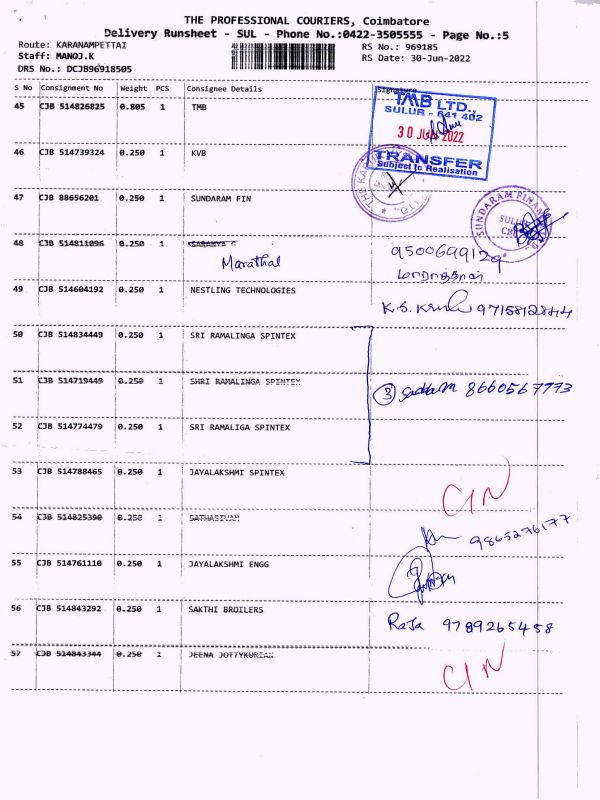 THE PROFESSIONAL COURIERS, Coimbatore
Delivery Runsheet - SUL - Phone No.:0422-3505555 - Page No.:5
Route: KARANAMPETTAI RS No.: 969185
Staff: MANOJ.K RS Date: 30-Jun-2022
DRS No.: DCJB96918505
S No Consignment No Weight PCS Consignee Details Signature
45 CJB 514826825 0.805 1 TMB
TMB LTD.,
SULUR - 641 402
30 JUN 2022
TRANSFER
Subject to Realisation
46 CJB 514739324 0.250 1 KVB
47 CJB 88656201 0.250 1 SUNDARAM FIN
SUNDARAM FINANCE
SULUR
48 CJB 514811096 0.250 1 SARANYA G
Marathal 9500699129
மாராத்தாள்
49 CJB 514604192 0.250 1 NESTLING TECHNOLOGIES
50 CJB 514834449 0.250 1 SRI RAMALINGA SPINTEX
51 CJB 514719449 0.250 1 SHRI RAMALINGA SPINTEX 3 8660567773
52 CJB 514774479 0.250 1 SRI RAMALIGA SPINTEX
53 CJB 514788465 0.250 1 JAYALAKSHMI SPINTEX
C/N
54 CJB 514825390 0.250 1 SATHASIVAM 9865276177
55 CJB 514761110 0.250 1 JAYALAKSHMI ENGG
56 CJB 514843292 0.250 1 SAKTHI BROILERS Raja 9789265458
57 CJB 514843344 0.250 1 JEENA JOTTYKURIAN
C/N